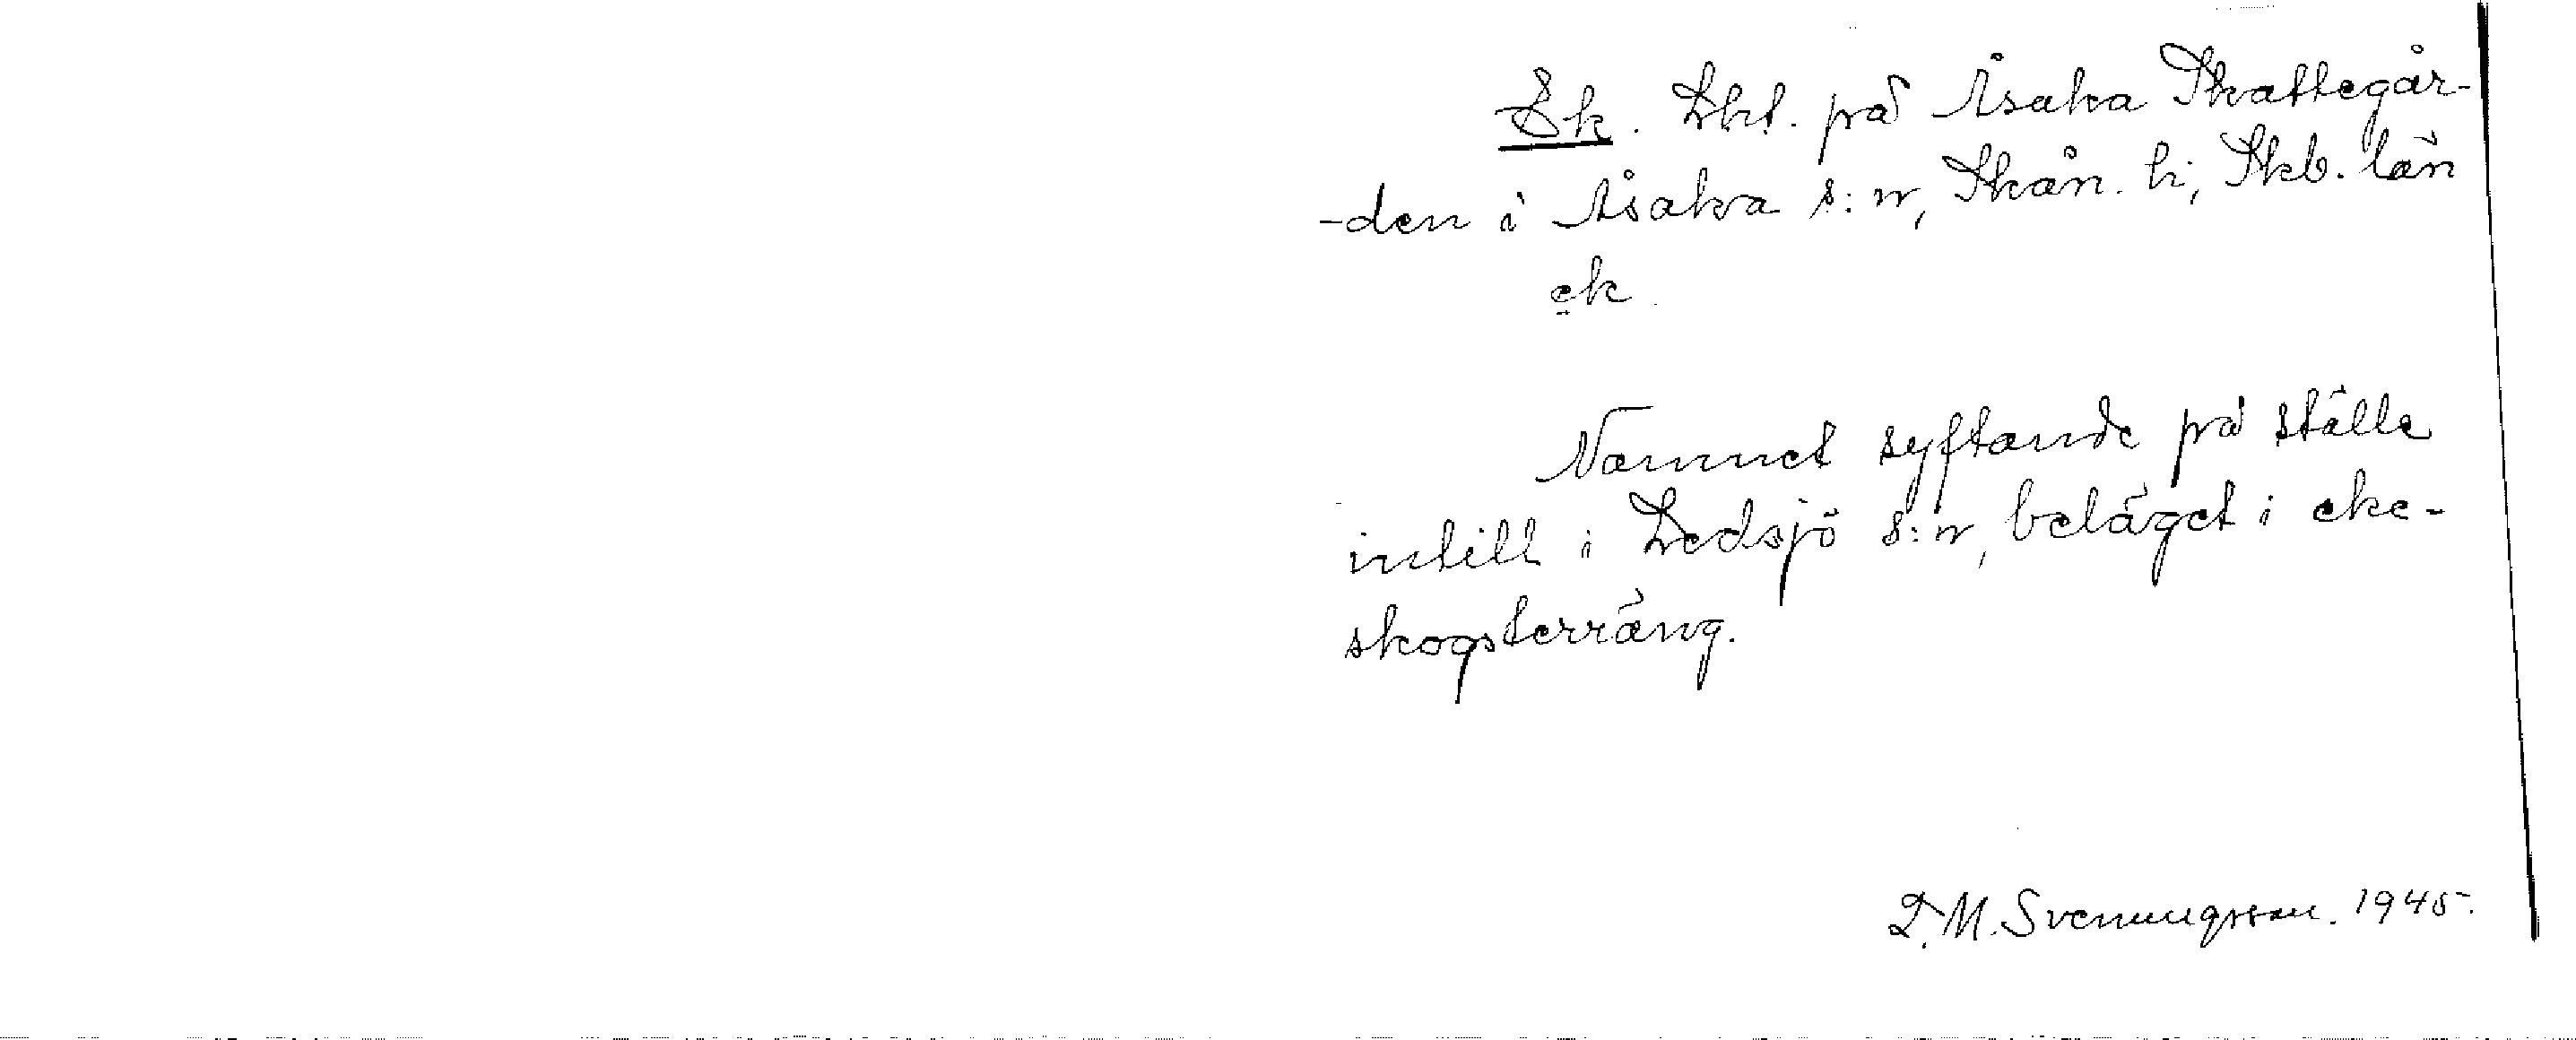 Ek. Lht. på Åsaka Skattegår-
-den i Åsaka s:n, Skån. h:, Skb. län
ek
Namnet syftande på ställe
intill i Ledsjö s:n, beläget i eke-
skogsterräng.
D. M. Svenungsson. 1945.